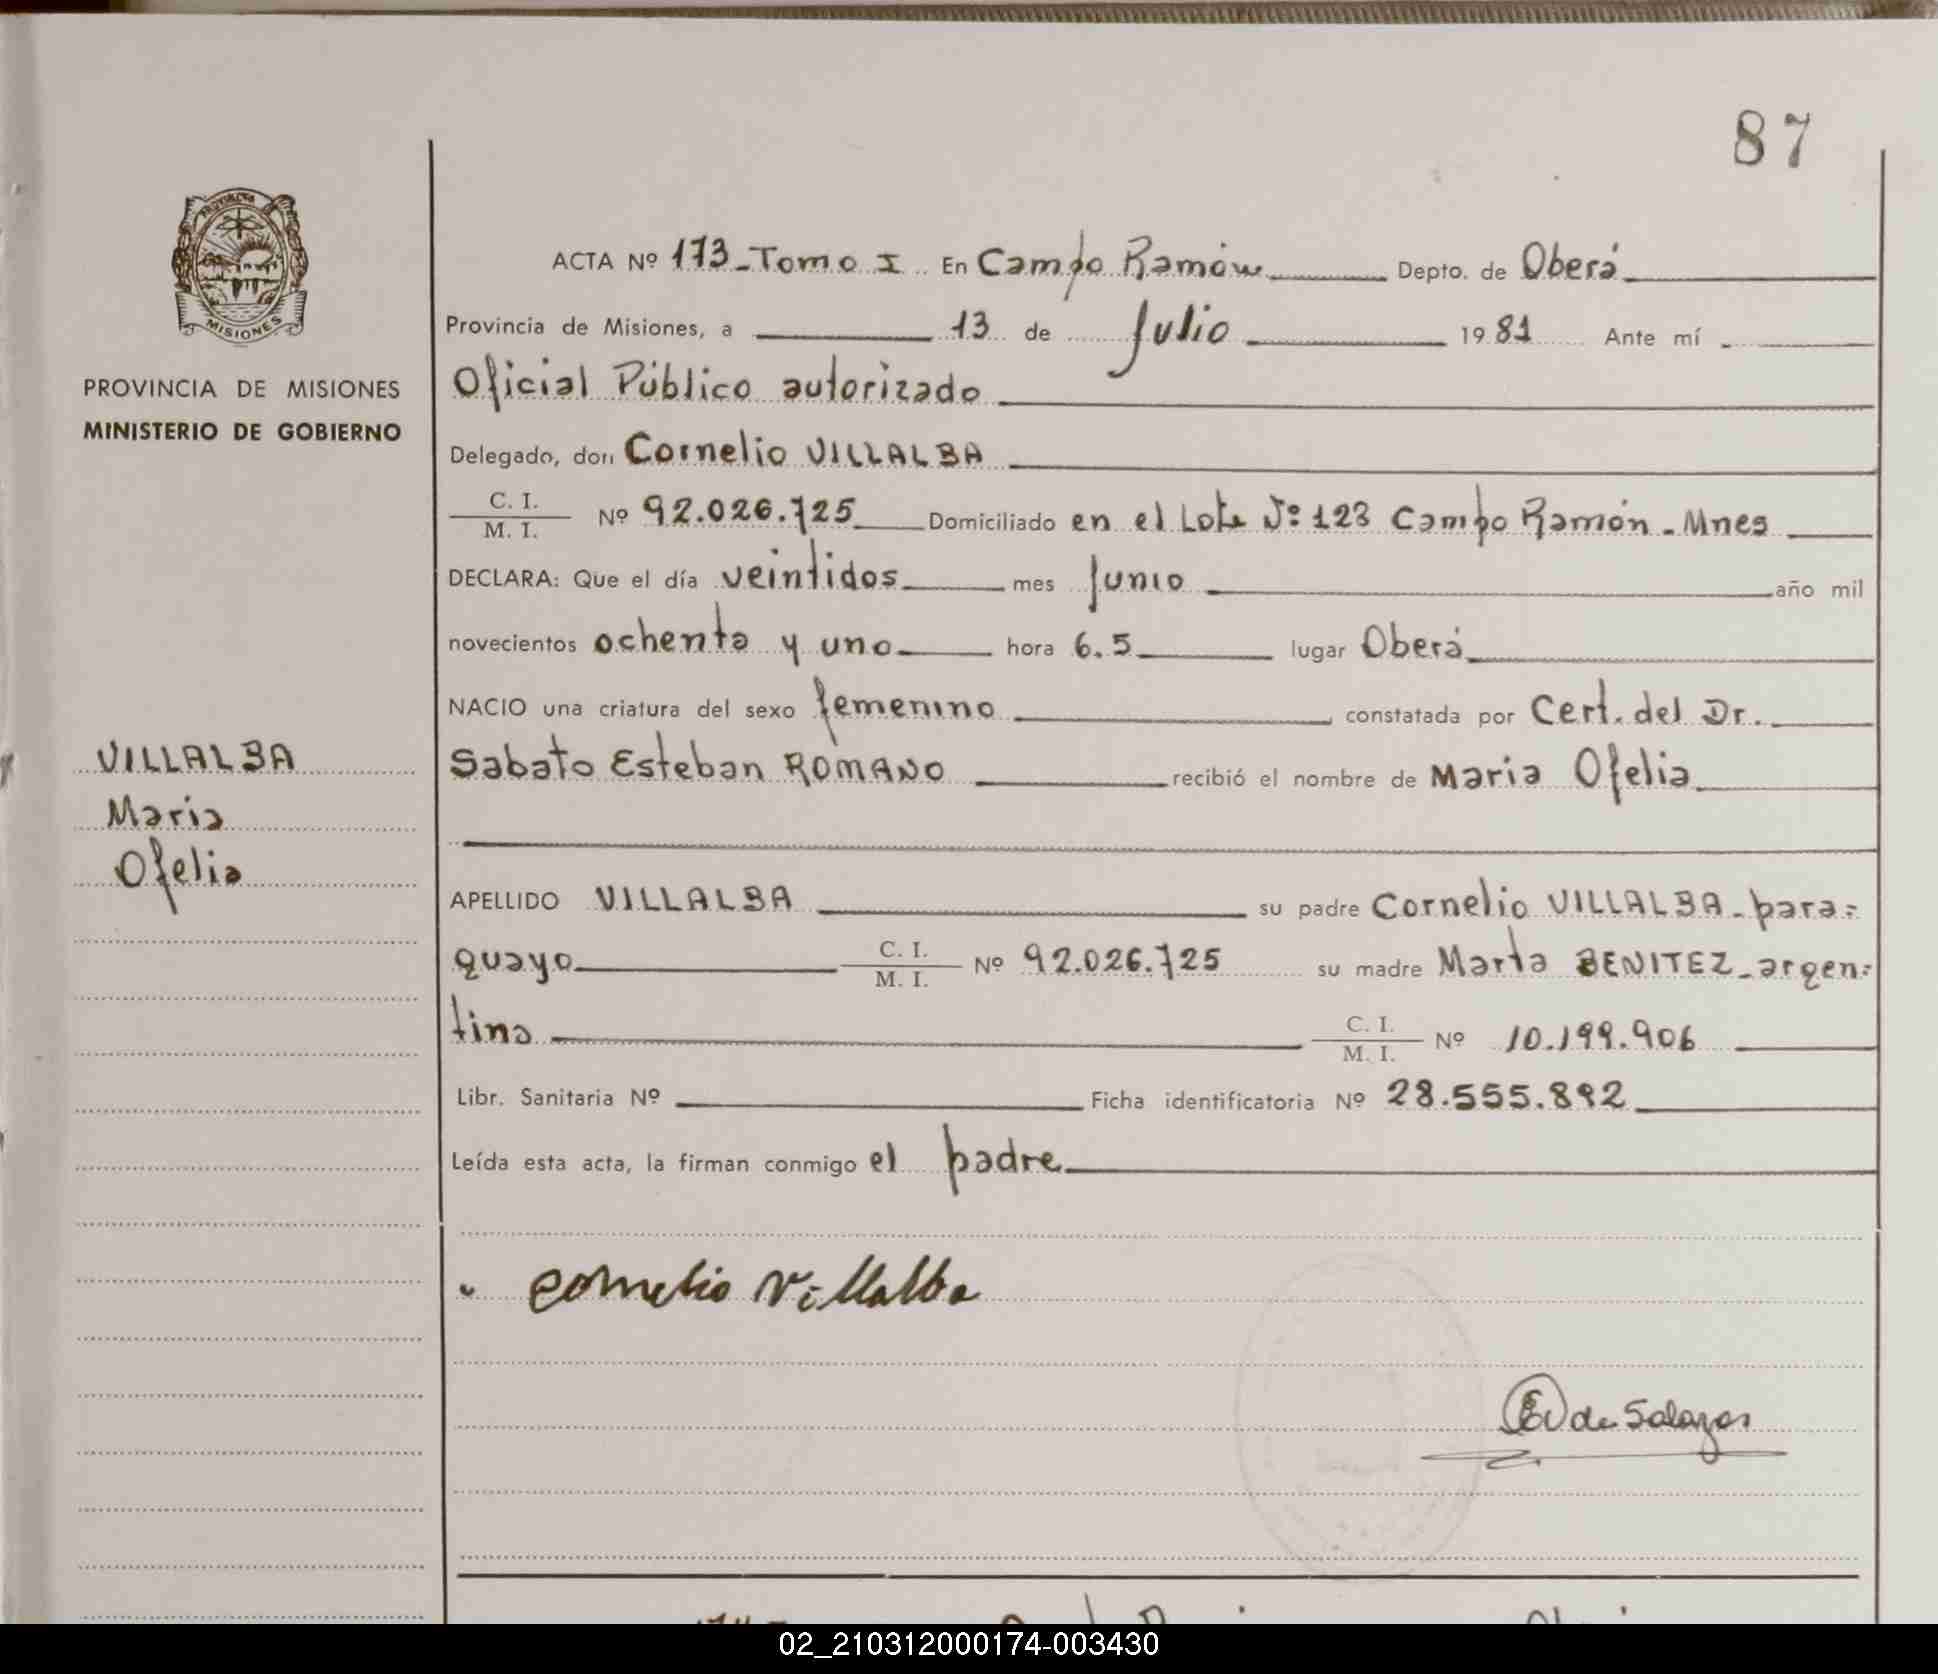 87
PROVINCIA
MISIONES
PROVINCIA DE MISIONES
MINISTERIO DE GOBIERNO
VILLALBA
Maria
Ofelia
ACTA Nº 173-Tomo I En Campo Ramón Depto. de Oberá
Provincia de Misiones, a 13 de Julio 1981 Ante mí
Oficial Público autorizado
Delegado, don Cornelio VILLALBA
C. I.
M. I. Nº 92.026.725 Domiciliado en el Lote Nº 123 Campo Ramón - Mnes
DECLARA: Que el día veintidos mes Junio año mil
novecientos ochenta y uno hora 6.5 lugar Oberá
NACIO una criatura del sexo femenino constatada por Cert. del Dr.
Sabato Esteban ROMANO recibió el nombre de Maria Ofelia
APELLIDO VILLALBA su padre Cornelio VILLALBA - para=
guayo C. I.
M. I. Nº 92.026.725 su madre Marta BENITEZ - argen=
tina C. I.
M. I. Nº 10.199.906
Libr. Sanitaria Nº Ficha identificatoria Nº 28.555.892
Leída esta acta, la firman conmigo el padre
Cornelio Villalba
de Salazar
02_210312000174-003430